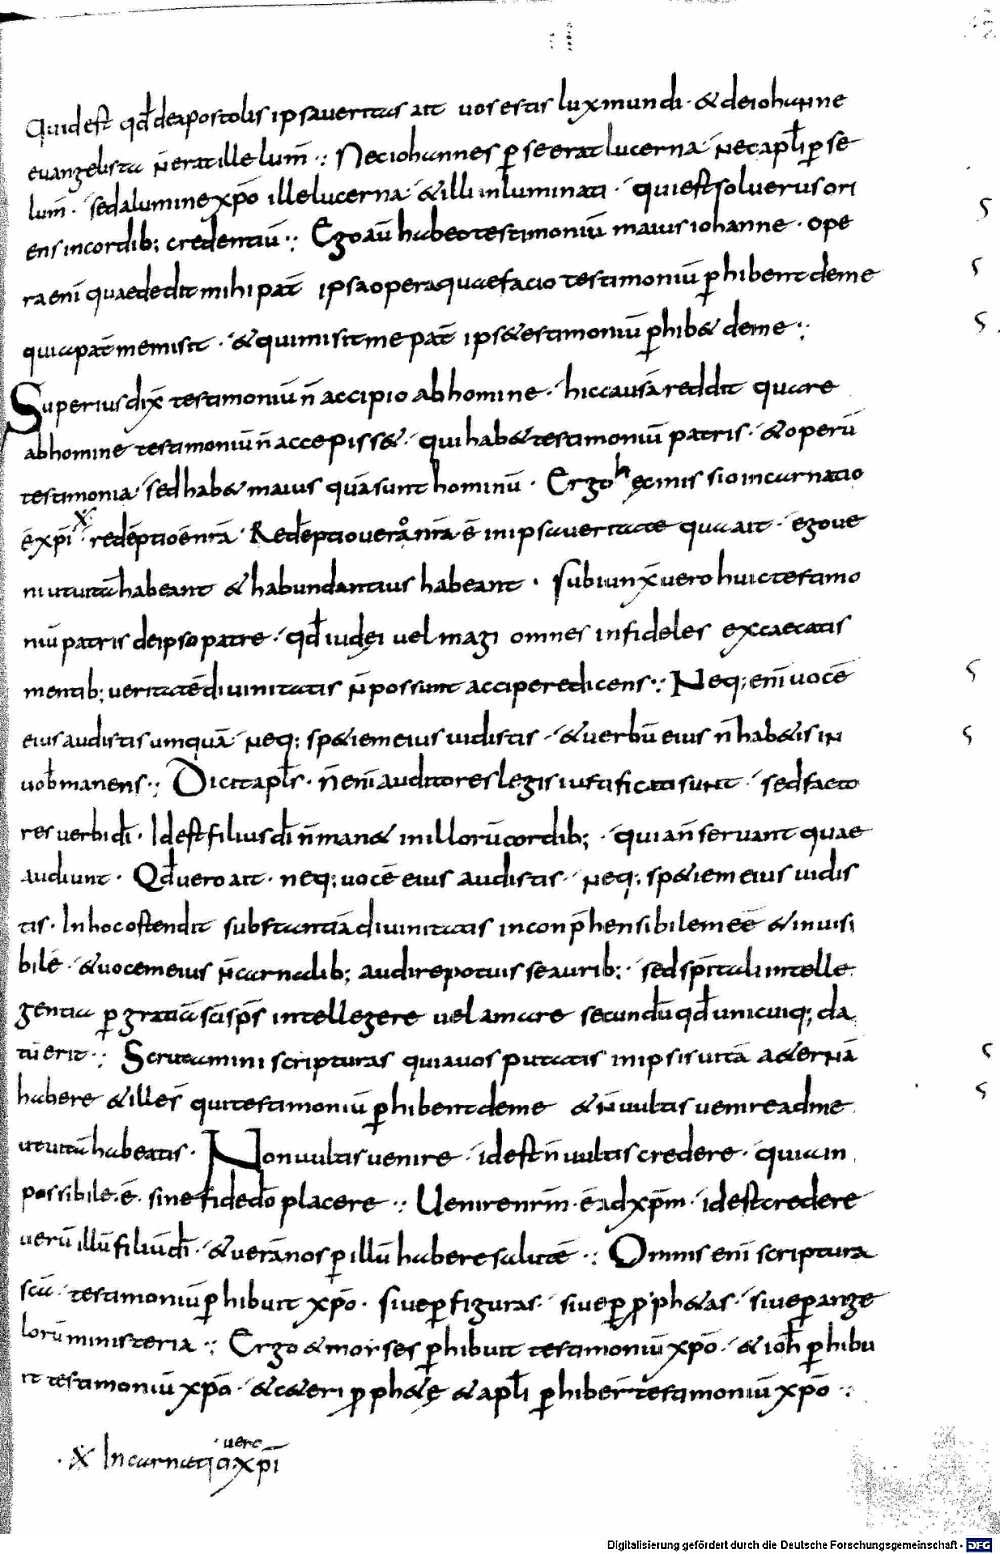 Quid est qđ deapostolis ipsaveritas ait vos estis lux mundi · & deiohanne
evangelista n̄ erat ille lum̄ ·: Nec iohannes ꝑ se erat lucerna · nec apl̄i ꝑ se
lum̄ · sed a lumine xp̄o ille lucerna · & illi inluminati · qui est sol verus ori
ens in cordib; credentiū ·: Ego aū habeo testimoniū maius iohanne · ope
ra enī quae dedit mihi pat̄ ipsa opera quae facio testimoniū ꝑhibent de me
quia pat̄ me misit · & qui misit me pat̄ ips& estimoniū ꝑhib& de me ·:
Superius dix̄ testimoniū n̄ accipio ab homine · hic causā reddit quare
ab homine testimoniū n̄ accepiss& · qui hab& testimoniū patris · & operū
testimonia · sed hab& maius quā sunt hominū · Ergo h ęc missio incarnatio
ē xp̄i · x redēptio ē nr̄a · Redēptio vero nr̄a ē in ipsa veritate qua ait · ego ve
ni ut vitā habeant & habundantius habeant · Subiunx̄ vero huic testimo
niū patris de ipso patre · qđ iudęi vel magi omnes infideles excaecatis
mentib; veritatē divinitatis n̄ possunt accipere dicens ·: Neq; enī vocē
eius audistis umquā · neq; sp&iem eius vidistis · & verbū eius n̄ hab&is in
vob̄ manens ·: Dicit apl̄s · n̄ enī auditores legis iustificati sunt · sed facto
res verbi dī · Id est filius dī n̄ man& in illorū cordib; · quia n̄ servant quae
audiunt · Qđ vero ait · neq; vocē eius audistis · neq; sp&iem eius vidis
tis · In hoc ostendit substantiā divinitatis inconp̄hensibilem eē & invisi
bilē · & vocem eius n̄ carnalib; audire potuisse aurib; · sed sp̄itali intelle
gentia ꝑ gratiā sc̄i sp̄s intellegere vel amare secundū qđ unicuiq; da
tū erit ·: Scrutamini scripturas quia vos putatis in ipsis vitā a&ernā
habere & illę s̄ qui testimoniū ꝑhibent de me & n̄ vultis venire ad me
ut vitā habeatis · Non vultis venire · id est n̄ vultis credere · quia in
possibile · ē · sine fide dō placere ·: Venire enim̄ · ē ad xp̄m · id est credere
verū illū filiū dī · & verā nos ꝑ illū habere salutē ·: Omnis enī scriptura
scā · testimoniū ꝑhibuit xp̄o · sive ꝑ figuras · sive ꝑ ꝓph&as · sive ꝑ ange
lorū ministeria ·: Ergo & moyses ꝑhibuit testimoniū xp̄o · & ioh̄ ꝑhibu
it testimoniū xp̄o · & c&eri ꝓph&ę & apl̄i ꝑhibent testimoniū xp̄o ·:
· x Incarnatio vero xp̄i
Digitalisierung gefördert durch die Deutsche Forschungsgemeinschaft - DFG